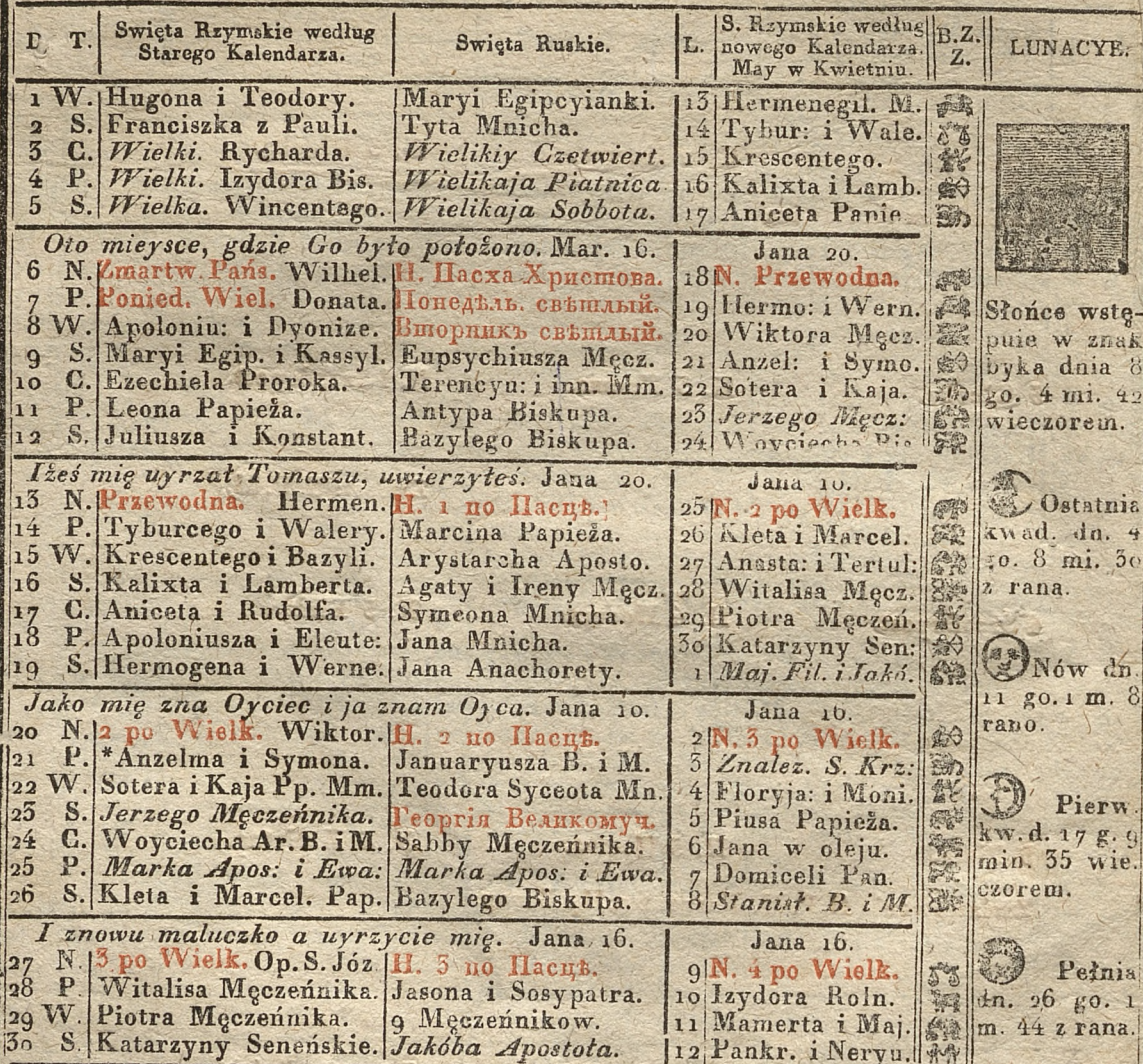 D T. Swięta Rzymskie według Starego Kalendarza. Swięta Ruskie. L. S. Rzymskie według nowego Kalendarza. May w Kwietniu. B.Z. Z. LUNACYE.
1 W. Hugona i Teodory. Maryi Egipcyianki. 13 Hermenegil. M.
2 S. Franciszka z Pauli. Tyta Mnicha. 14 Tybur: i Wale.
3 C. Wielki. Rycharda. Wielikiy Czetwiert. 15 Krescentego.
4 P. Wielki. Izydora Bis. Wielikaja Piatnica 16 Kalixta i Lamb.
5 S. Wielka. Wincentego. Wielikaja Sobbota. 17 Aniceta Papie
Oto mieysce, gdzie Go było położono. Mar. 16. Jana 20.
6 N. Zmartw. Pańs. Wilhel. Н. Пасха Христова. 18 N. Przewodna.
7 P. Ponied. Wiel. Donata. Понедѣль. свѣтлый. 19 Hermo: i Wern.
8 W. Apoloniu: i Dyonize. Вторникъ свѣтлый. 20 Wiktora Męcz.
9 S. Maryi Egip. i Kassyl. Eupsychiusza Męcz. 21 Anzel: i Symo.
10 C. Ezechiela Proroka. Terencyu: i inn. Mm. 22 Sotera i Kaja.
11 P. Leona Papieża. Antypa Biskupa. 23 Jerzego Męcz:
12 S. Juliusza i Konstant. Bazylego Biskupa. 24 Woyciecha Bis
Iżeś mię uyrzał Tomaszu, uwierzyłeś. Jana 20. Jana 10.
13 N. Przewodna. Hermen. Н. 1 по Пасцѣ. 25 N. 2 po Wielk.
14 P. Tyburcego i Walery. Marcina Papieża. 26 Kleta i Marcel.
15 W. Krescentego i Bazyli. Arystarcha Aposto. 27 Anasta: i Tertul:
16 S. Kalixta i Lamberta. Agaty i Ireny Męcz. 28 Witalisa Męcz.
17 C. Aniceta i Rudolfa. Symeona Mnicha. 29 Piotra Męczeń.
18 P. Apoloniusza i Eleute: Jana Mnicha. 30 Katarzyny Sen:
19 S. Hermogena i Werne. Jana Anachorety. 1 Maj. Fil. i Jakó.
Jako mię zna Oyciec i ja znam Oyca. Jana 10. Jana 16.
20 N. 2 po Wielk. Wiktor. Н. 2 по Пасцѣ. 2 N. 3 po Wielk.
21 P. *Anzelma i Symona. Januaryusza B. i M. 3 Znalez. S. Krz:
22 W. Sotera i Kaja Pp. Mm. Teodora Syceota Mn. 4 Floryja: i Moni.
23 S. Jerzego Męczeńnika. Георгія Великомуч. 5 Piusa Papieża.
24 C. Woyciecha Ar. B. i M. Sabby Męczeńnika. 6 Jana w oleju.
25 P. Marka Apos: i Ewa: Marka Apos: i Ewa. 7 Domiceli Pan.
26 S. Kleta i Marcel. Pap. Bazylego Biskupa. 8 Stanisł. B. i M.
I znowu maluczko a uyrzycie mię. Jana 16. Jana 16.
27 N. 3 po Wielk. Op. S. Józ Н. 3 по Пасцѣ. 9 N. 4 po Wielk.
28 P Witalisa Męczeńnika. Jasona i Sosypatra. 10 Izydora Roln.
29 W. Piotra Męczeńnika. 9 Męczeńnikow. 11 Mamerta i Maj.
30 S. Katarzyny Seneńskie. Jakóba Apostoła. 12 Pankr. i Neryu.
Słońce wstę-
puie w znak
byka dnia 8
go. 4 mi. 42
wieczorem.
Ostatnia
kwad. dn. 4
go. 8 mi. 30
z rana.
Nów dn.
11 go. 1 m. 8
rano.
Pierw
kw. d. 17 g. 9
min. 35 wie.
czorem.
Pełnia
dn. 26 go. 1
m. 44 z rana.